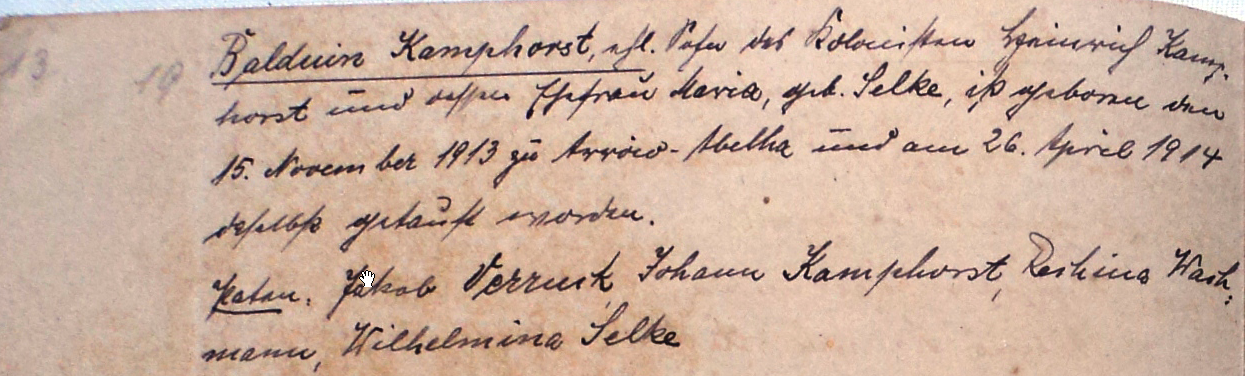 13 19 Balduin Kamphorst, ehl. Sohn des Kolonisten Heinrich Kamp-
horst und dessen Ehefrau Maria, geb. Selke, ist geboren den
15. November 1913 zu Arroio-Abelha und am 26. April 1914
daselbst getauft worden.
Paten: Jakob Johann Kamphorst, Wach-
mann, Wilhelmina Selke